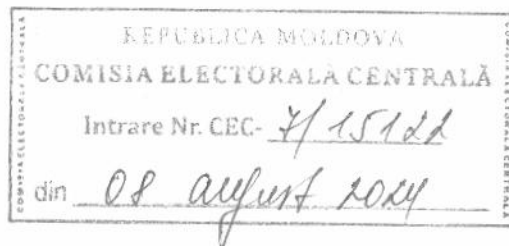 REPUBLICA MOLDOVA
COMISIA ELECTORALĂ CENTRALĂ
Intrare Nr. CEC- 7/15122
din 08 august 2024
COMISIA ELECTORALĂ CENTRALĂ
COMISIA ELECTORALĂ CENTRALĂ